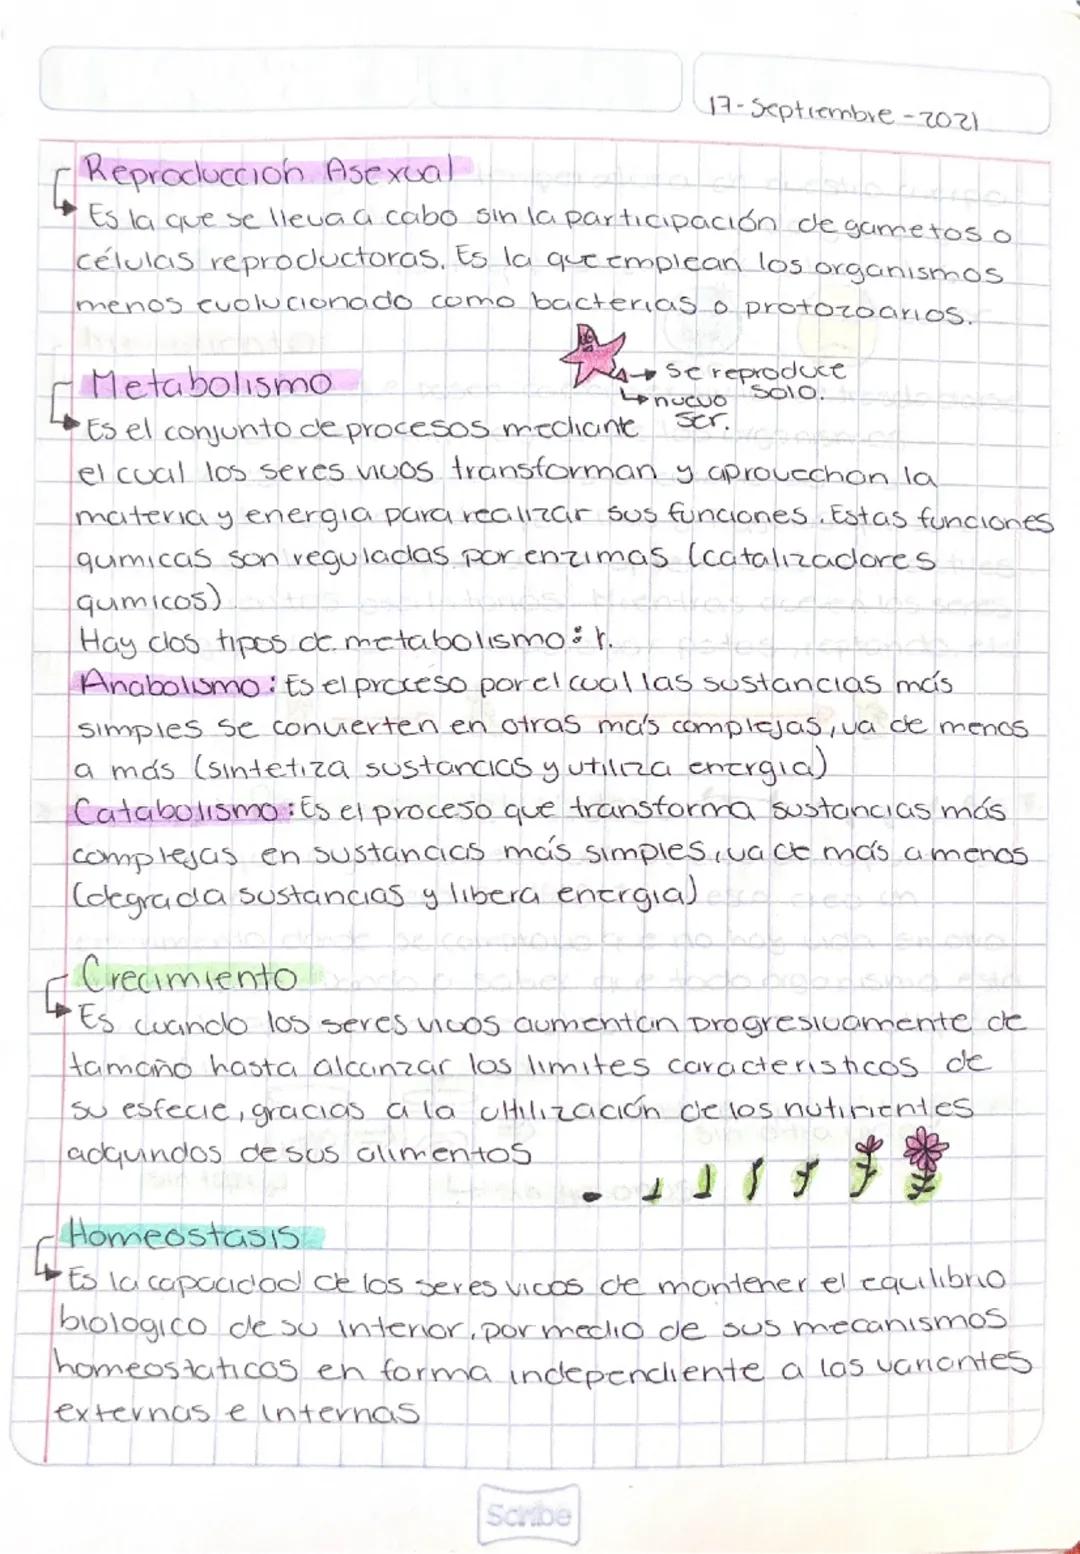 17-Septiembre-2021
Reproducción Asexual
Es la que se lleva a cabo sin la participación de gametos o
células reproductoras. Es la que emplean los organismos
menos evolucionado como bacterias o protozoarios.
se reproduce
solo.
nuevo
ser.
Metabolismo
Es el conjunto de procesos mediante
el cual los seres vivos transforman y aprovechan la
materia y energia para realizar sus funciones. Estas funciones
quimicas son reguladas por enzimas (catalizadores
quimicos)
Hay dos tipos de metabolismo:
Anabolismo: Es el proceso por el cual las sustancias más
simples se convierten en otras más complejas, va de menos
a más (sintetiza sustancias y utiliza energia)
Catabolismo: Es el proceso que transforma sustancias más
complejas en sustancias más simples, va de más a menos
(degrada sustancias y libera energia)
Crecimiento
Es cuando los seres vivos aumentan progresivamente de
tamaño hasta alcanzar los limites caracteristicos de
su especie, gracias a la utilización de los nutrientes
adquiridos de sus alimentos
Homeostasis
Es la capacidad de los seres vivos de mantener el equilibrio
biologico de su interior, por medio de sus mecanismos
homeostaticos en forma independiente a las variantes
externas e internas
Scribe